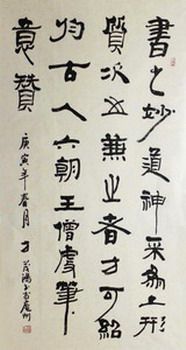 書之妙道神采為上形
質次之兼之者方可紹
於古人六朝王僧虔筆
意贊
庚寅年春月